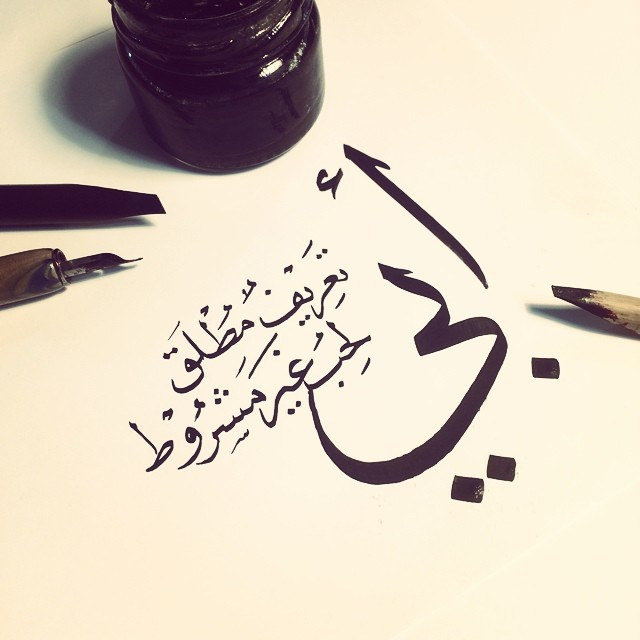 أبي
تَعرِيَفٌ مُطْلَق
لِحُبٍ غَيرَ مَشِرُوُطْ